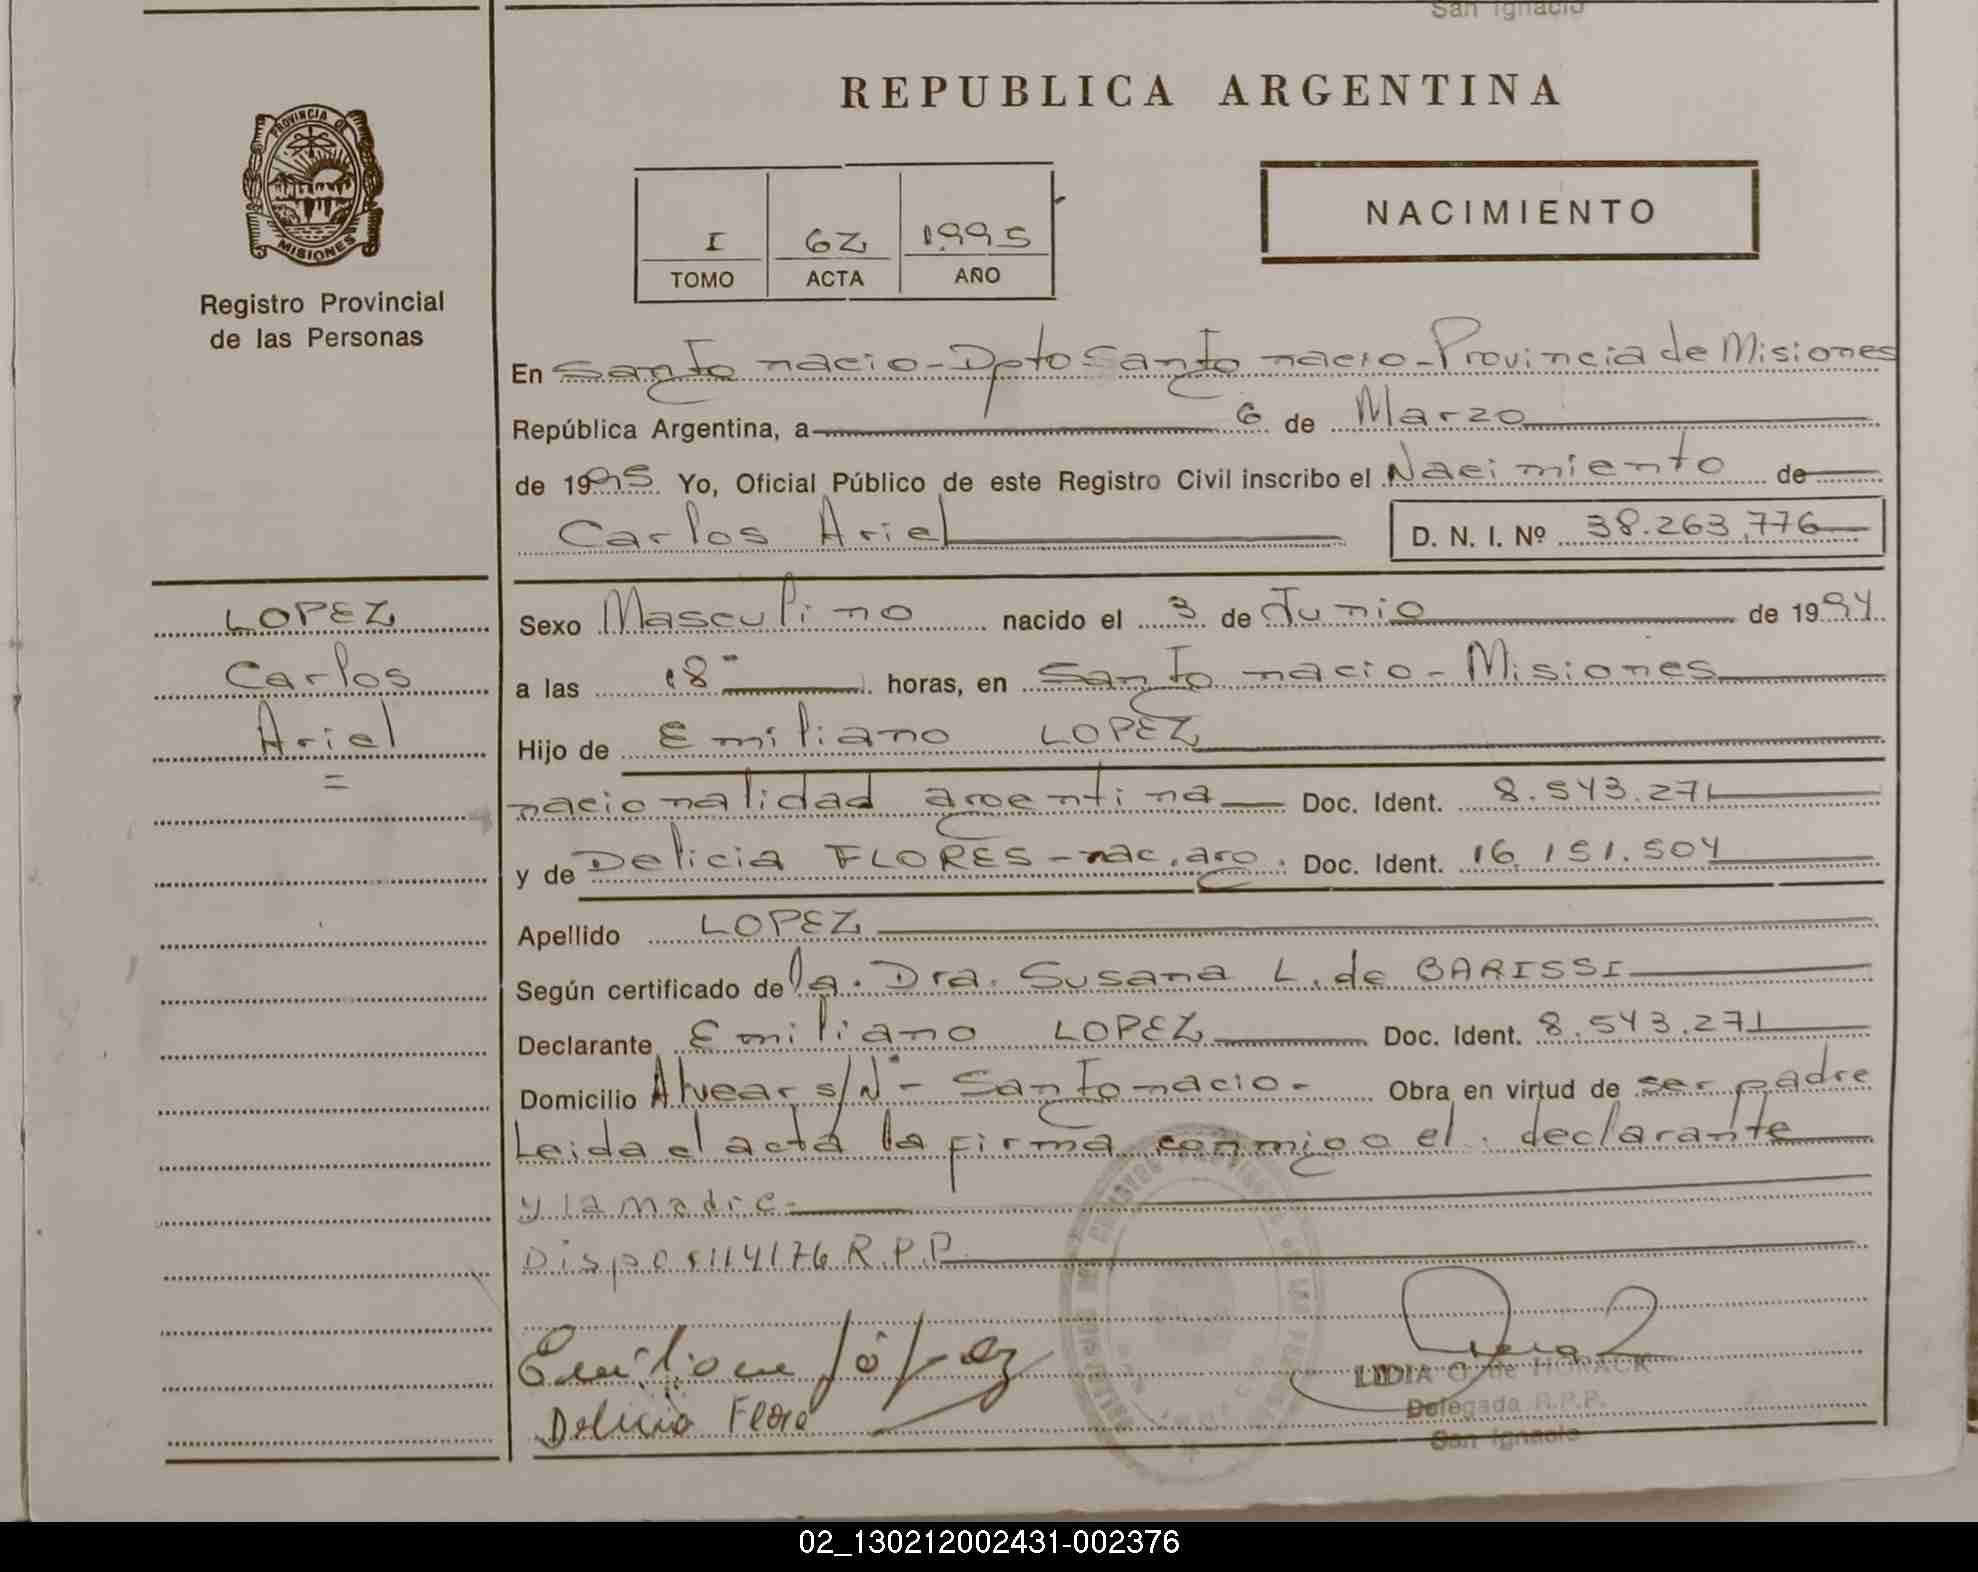 San Ignacio
REPUBLICA ARGENTINA
PROVINCIA DE
MISIONES
Registro Provincial
de las Personas
NACIMIENTO
I 62 1995
TOMO ACTA AÑO
En San Ignacio - Dpto San Ignacio - Provincia de Misiones
República Argentina, a 6 de Marzo
de 1995 Yo, Oficial Público de este Registro Civil inscribo el Nacimiento de
Carlos Ariel D. N. I. Nº 38.263.776
LOPEZ
Carlos
Ariel
=
Sexo Masculino nacido el 3 de Junio de 1994
a las 18 horas, en San Ignacio - Misiones
Hijo de Emiliano LOPEZ
nacionalidad argentina Doc. Ident. 8.543.271
y de Delicia FLORES - nac. arg. Doc. Ident. 16.151.504
Apellido LOPEZ
Según certificado de la. Dra. Susana L. de BARISSI
Declarante Emiliano LOPEZ Doc. Ident. 8.543.271
Domicilio Alvear s/Nº - San Ignacio - Obra en virtud de ser padre
Leida el acta la firma conmigo el declarante
y la madre -
Dispo 114/76 R.P.P.
Emiliano López
Delicia Flore
LIDIA G. de HORACK
Delegada R.P.P.
San Ignacio
02_130212002431-002376